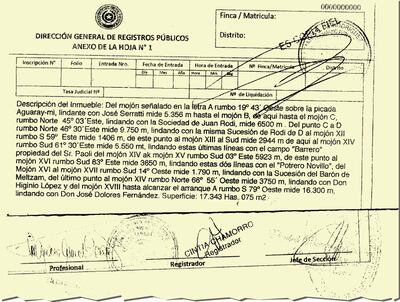 0000000000
DIRECCIÓN GENERAL DE REGISTROS PÚBLICOS
ANEXO DE LA HOJA N° 1
Finca / Matrícula:
Distrito:
ES COPIA FIEL
Inscripción N° Folio Entrada Nro. Fecha de Entrada Hora de Entrada Finca / Matrícula Distrito
Día Mes Año Hs Min
Tasa Judicial N° N° de Liquidación
Descripción del Inmueble: Del mojón señalado en la letra A rumbo 19° 43´ Oeste sobre la picada
Aguaray-mi, lindando con José Serratti mide 5.356 m hasta el mojón B, de aquí hasta el mojón C,
rumbo Norte 45° 03´ Este, lindando con la Sociedad de Juan Rodi, mide 8.200 m . Del punto C a D
rumbo Norte 46° 30´Este mide 9.750 m, lindando con la misma Sucesión de Rodi de D al mojón XII
rumbo S 59° Este mide 1406 m, de este punto al mojón XIII al Sud mide 2944 m de aquí al mojón XIV
rumbo Sud 61° 30´Este mide 5.550 mt, lindando estas últimas líneas con el campo "Barrero"
propiedad del Sr. Paoli del mojón XIV ak mojón XV rumbo Sud 03° Este 5923 m, de este punto al
mojón XVI rumbo Sud 83° Este mide 3650 m, lindando estas dos líneas con el "Potrero Novillo", del
mojón XVI al mojón XVII rumbo Sud 14° Oeste mide 1.790 m, lindando con la Sucesión del Barón de
Meltzam, del último punto al mojón XIV rumbo Norte 66° 55´ Oeste mide 3750 m, lindando con Don
Higinio López y del mojón XVIII hasta alcanzar el arranque A rumbo S 79° Oeste mide 16.300 m,
lindando con Don José Dolores Fernández. Superficie: 17.343 Has. 075 m2
CINTIA CHAMORRO
Registrador
Profesional Registrador Jefe de Sección